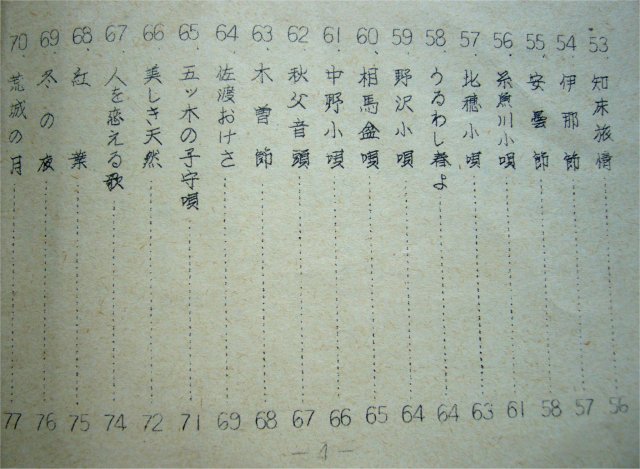 53. 知床旅情 56
54. 伊那節 57
55. 安曇節 58
56. 糸魚川小唄 61
57. 比穂小唄 63
58. うるわし春よ 64
59. 野沢小唄 64
60. 相馬盆唄 65
61. 中野小唄 66
62. 秩父音頭 67
63. 木曽節 68
64. 佐渡おけさ 69
65. 五ッ木の子守唄 71
66. 美しき天然 72
67. 人を恋える歌 74
68. 紅葉 75
69. 冬の夜 76
70. 荒城の月 77
— 4 —